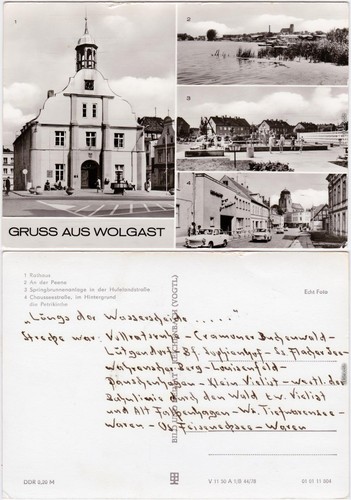 1
2
3
4
GRUSS AUS WOLGAST
1 Rathaus
2 An der Peene
3 Springbrunnenanlage in der Hufelandstraße
4 Chausseestraße, im Hintergrund
die Petrikirche
Echt Foto
„Längs der Wasserscheide.....“
Strecke war: Vollratsruhe - Cramoner Buchenwald -
Lütgendorf Bf. - Ss. Flacher See -
Wahrenscher Berg - Louisenfeld -
Panschenhagen - Klein Vielist - westl. der
Bahnlinie durch den Wald zw. Vielist
und Alt Falkenhagen - Ws. Tiefwarensee -
Waren - Waren
BILD UND HEIMAT REICHENBACH (VOGTL)
DDR 0,20 M
V 11 50 A 1/B 44/78
01 01 11 304